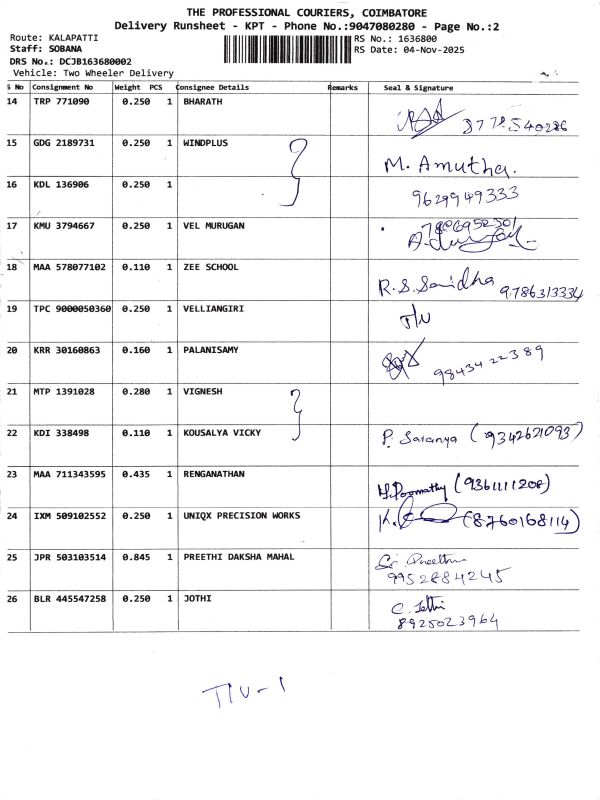 THE PROFESSIONAL COURIERS, COIMBATORE
Delivery Runsheet - KPT - Phone No.:9047080280 - Page No.:2
Route: KALAPATTI
RS No.: 1636800
Staff: SOBANA
RS Date: 04-Nov-2025
DRS No.: DCJB163680002
Vehicle: Two Wheeler Delivery
S No Consignment No Weight PCS Consignee Details Remarks Seal & Signature
14 TRP 771090 0.250 1 BHARATH
15 GDG 2189731 0.250 1 WINDPLUS
M. Amutha.
16 KDL 136906 0.250 1
9629949333
17 KMU 3794667 0.250 1 VEL MURUGAN
18 MAA 578077102 0.110 1 ZEE SCHOOL
R.S. Sanidha 9786313334
19 TPC 9000050360 0.250 1 VELLIANGIRI
T/U
20 KRR 30160863 0.160 1 PALANISAMY
98434 22389
21 MTP 1391028 0.280 1 VIGNESH
22 KDI 338498 0.110 1 KOUSALYA VICKY
P. Saranya (9342621093)
23 MAA 711343595 0.435 1 RENGANATHAN
(9361111208)
24 IXM 509102552 0.250 1 UNIQX PRECISION WORKS
(8760168114)
25 JPR 503103514 0.845 1 PREETHI DAKSHA MAHAL
9952884245
26 BLR 445547258 0.250 1 JOTHI
8925023964
T/U-1